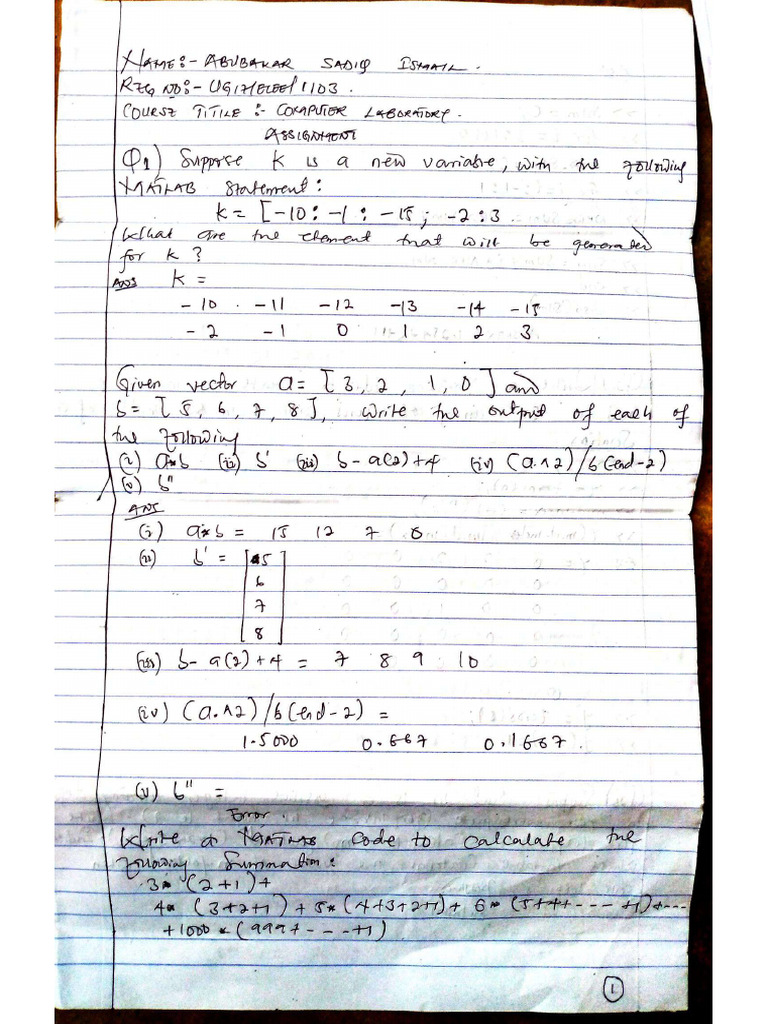 NAME:- ABUBAKAR SADIQ ISMAIL.
REG NO:- UG17/ELEE/1103.
COURSE TITILE :- COMPUTER LABORATORY.
ASSIGNMENT
Q1) Suppose K is a new variable, with the following
MATLAB statement:
k = [-10: -1 : -15; -2:3
What are the element that will be generated
for k ?
ANS K =
-10 -11 -12 -13 -14 -15
-2 -1 0 1 2 3
Given vector a = [3, 2, 1, 0] and
b = [5, 6, 7, 8], write the output of each of
the following
(i) a*b (ii) b' (iii) b-a(2)+4 (iv) (a.^2)/b(end-2)
(v) b"
ANS
(i) a*b = 15 12 7 0
(ii) b' = [5
6
7
8]
(iii) b-a(2)+4 = 7 8 9 10
(iv) (a.^2)/b(end-2) =
1.5000 0.667 0.1667.
(v) b" =
Error.
Write a MATLAB code to calculate the
following Summation:
3* (2+1)+
4* (3+2+1) + 5*(4+3+2+1)+ 6*(5+4+---+1)+---
+1000*(999+---+1)
1